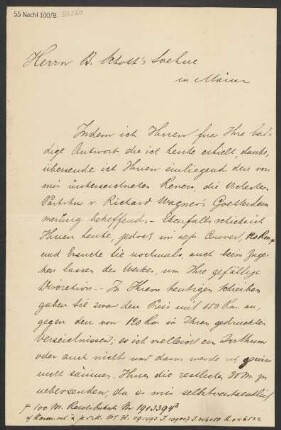 55 Nachl 100/B
Herrn B. Schott's Soehne
in Mainz
Indem ich Ihnen für Ihre bal-
digst Antwort die ich heute erhielt, danke,
übersende ich Ihnen einliegend den von
mir unterzeichneten Revers, die Orchester
Partitur v. Richard Wagner's Goetterdäm-
merung betreffend. Ebenfalls schicke ich
Ihnen heute, jedoch in Couvert,
und ersuche Sie nochmals auch beim
lassen des Werkes, um Ihre gefällige
Discretion. In Ihrem heutigen Schreiben
gaben Sie zwar den Preis mit an,
gegen den von in Ihren gedruckten
Verzeichnissen, so ich vielleicht im Irrthum
oder auch nicht und dann werde ich
nicht säumen, Ihnen die restlichen 30 M zu
uebersenden, da es mir selbstverständlich
+ 100 M.